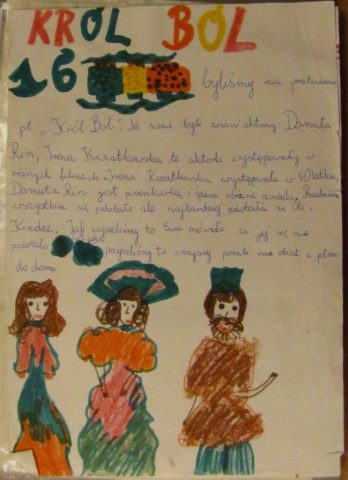 KRÓL BÓL
16 byliśmy na przedstawieniu
pt. "Król Ból". Na scenie były znane aktorzy Danuta
Rin, Irena Kwiatkowska te aktorki występowały w
różnych filmach Irena Kwiatkowska występowała w 40-latku,
Danuta Rin jest piosenkarką, i śpiewa różne
wszystkim się podobało ale najbardziej podobało się Oli i
Kindze. Jak wyszliśmy to Ewa mówiła że jej się nie
podobało przyszliśmy to wszyscy poszli na obiad a potem
do domu.